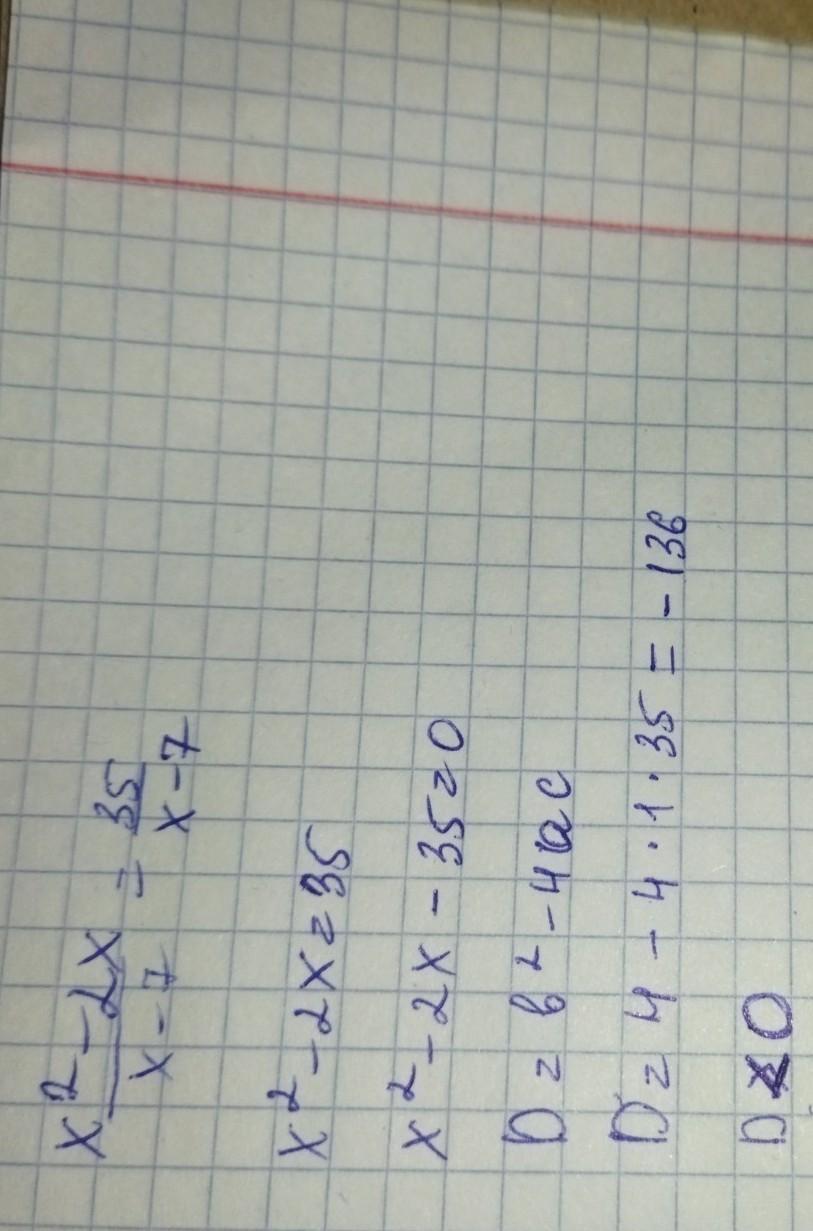 x² - 2x / x - 7 = 35 / x - 7
x² - 2x = 35
x² - 2x - 35 = 0
D = b² - 4ac
D = 4 - 4 · 1 · 35 = - 136
D < 0